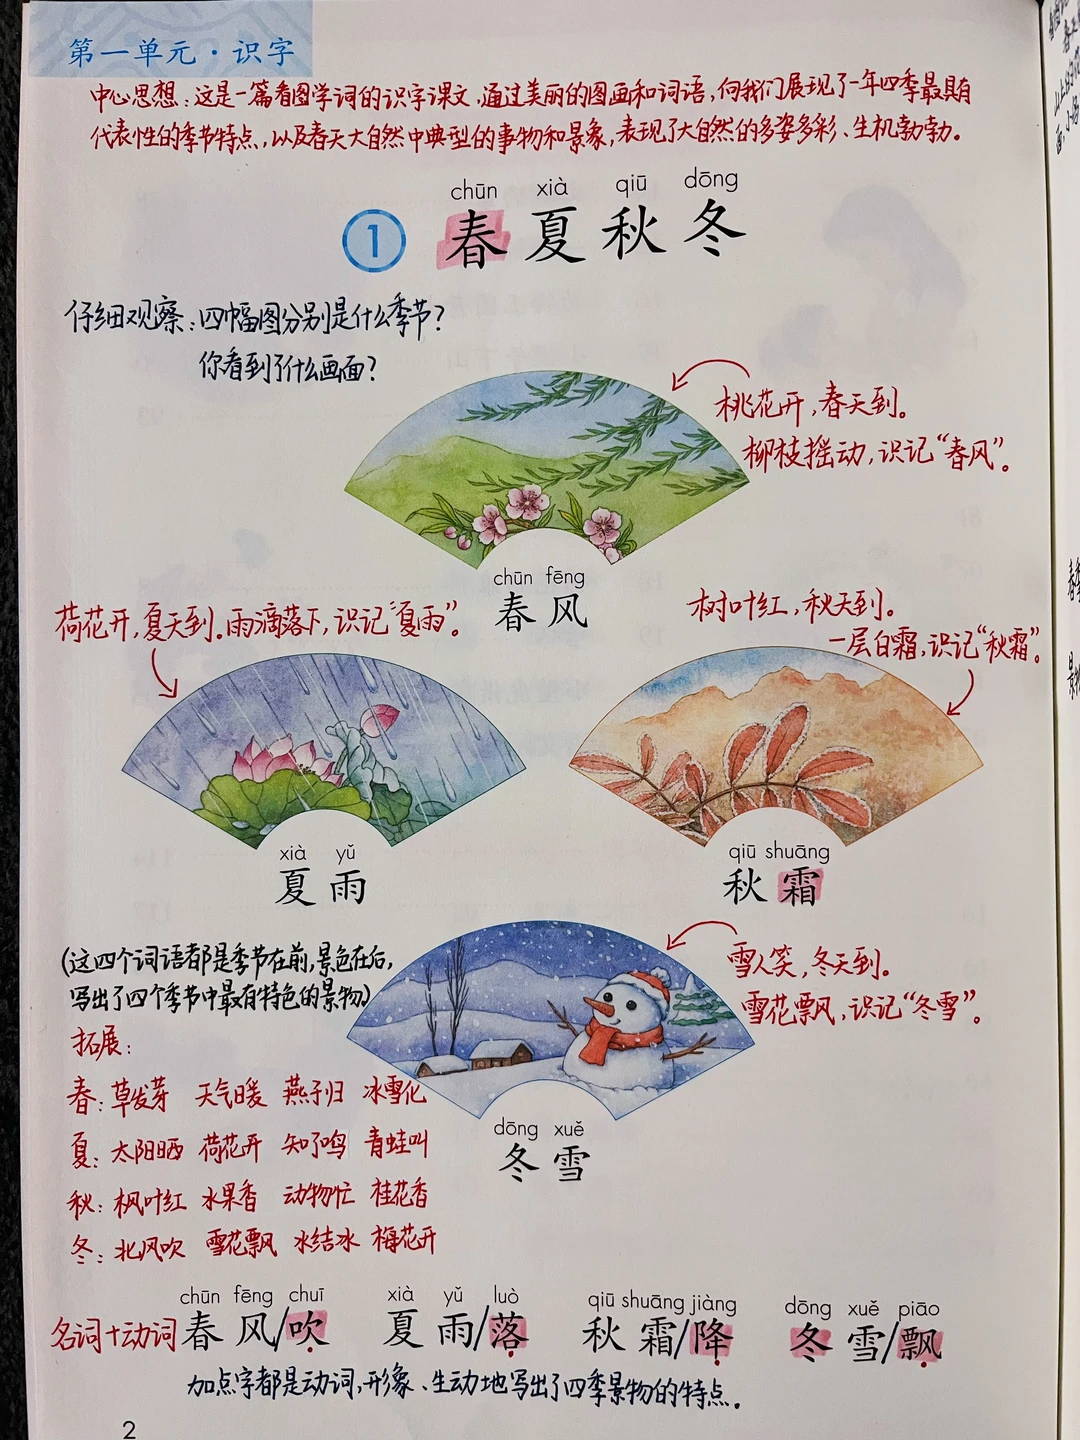 第一单元·识字
中心思想：这是一篇看图学词的识字课文，通过美丽的图画和词语，向我们展现了一年四季最具有
代表性的季节特点，以及春天大自然中典型的事物和景象，表现了大自然的多姿多彩、生机勃勃。
chūn xià qiū dōng
1 春夏秋冬
仔细观察：四幅图分别是什么季节？
你看到了什么画面？
桃花开，春天到。
柳枝摇动，识记“春风”。
chūn fēng
春风
荷花开，夏天到。雨滴落下，识记“夏雨”。
树叶红，秋天到。
一层白霜，识记“秋霜”。
xià yǔ
夏雨
qiū shuāng
秋霜
（这四个词语都是季节在前，景色在后，
写出了四个季节中最有特色的景物）
雪人笑，冬天到。
雪花飘风，识记“冬雪”。
dōng xuě
冬雪
拓展：
春：草发芽 天气暖 燕子归 冰雪化
夏：太阳晒 荷花开 知了鸣 青蛙叫
秋：枫叶红 水果香 动物忙 桂花香
冬：北风吹 雪花飘 水结冰 梅花开
chūn fēng chuī xià yǔ luò qiū shuāng jiàng dōng xuě piāo
名词+动词 春风/吹 夏雨/落 秋霜/降 冬雪/飘
加点字都是动词，形象、生动地写出了四季景物的特点。
2